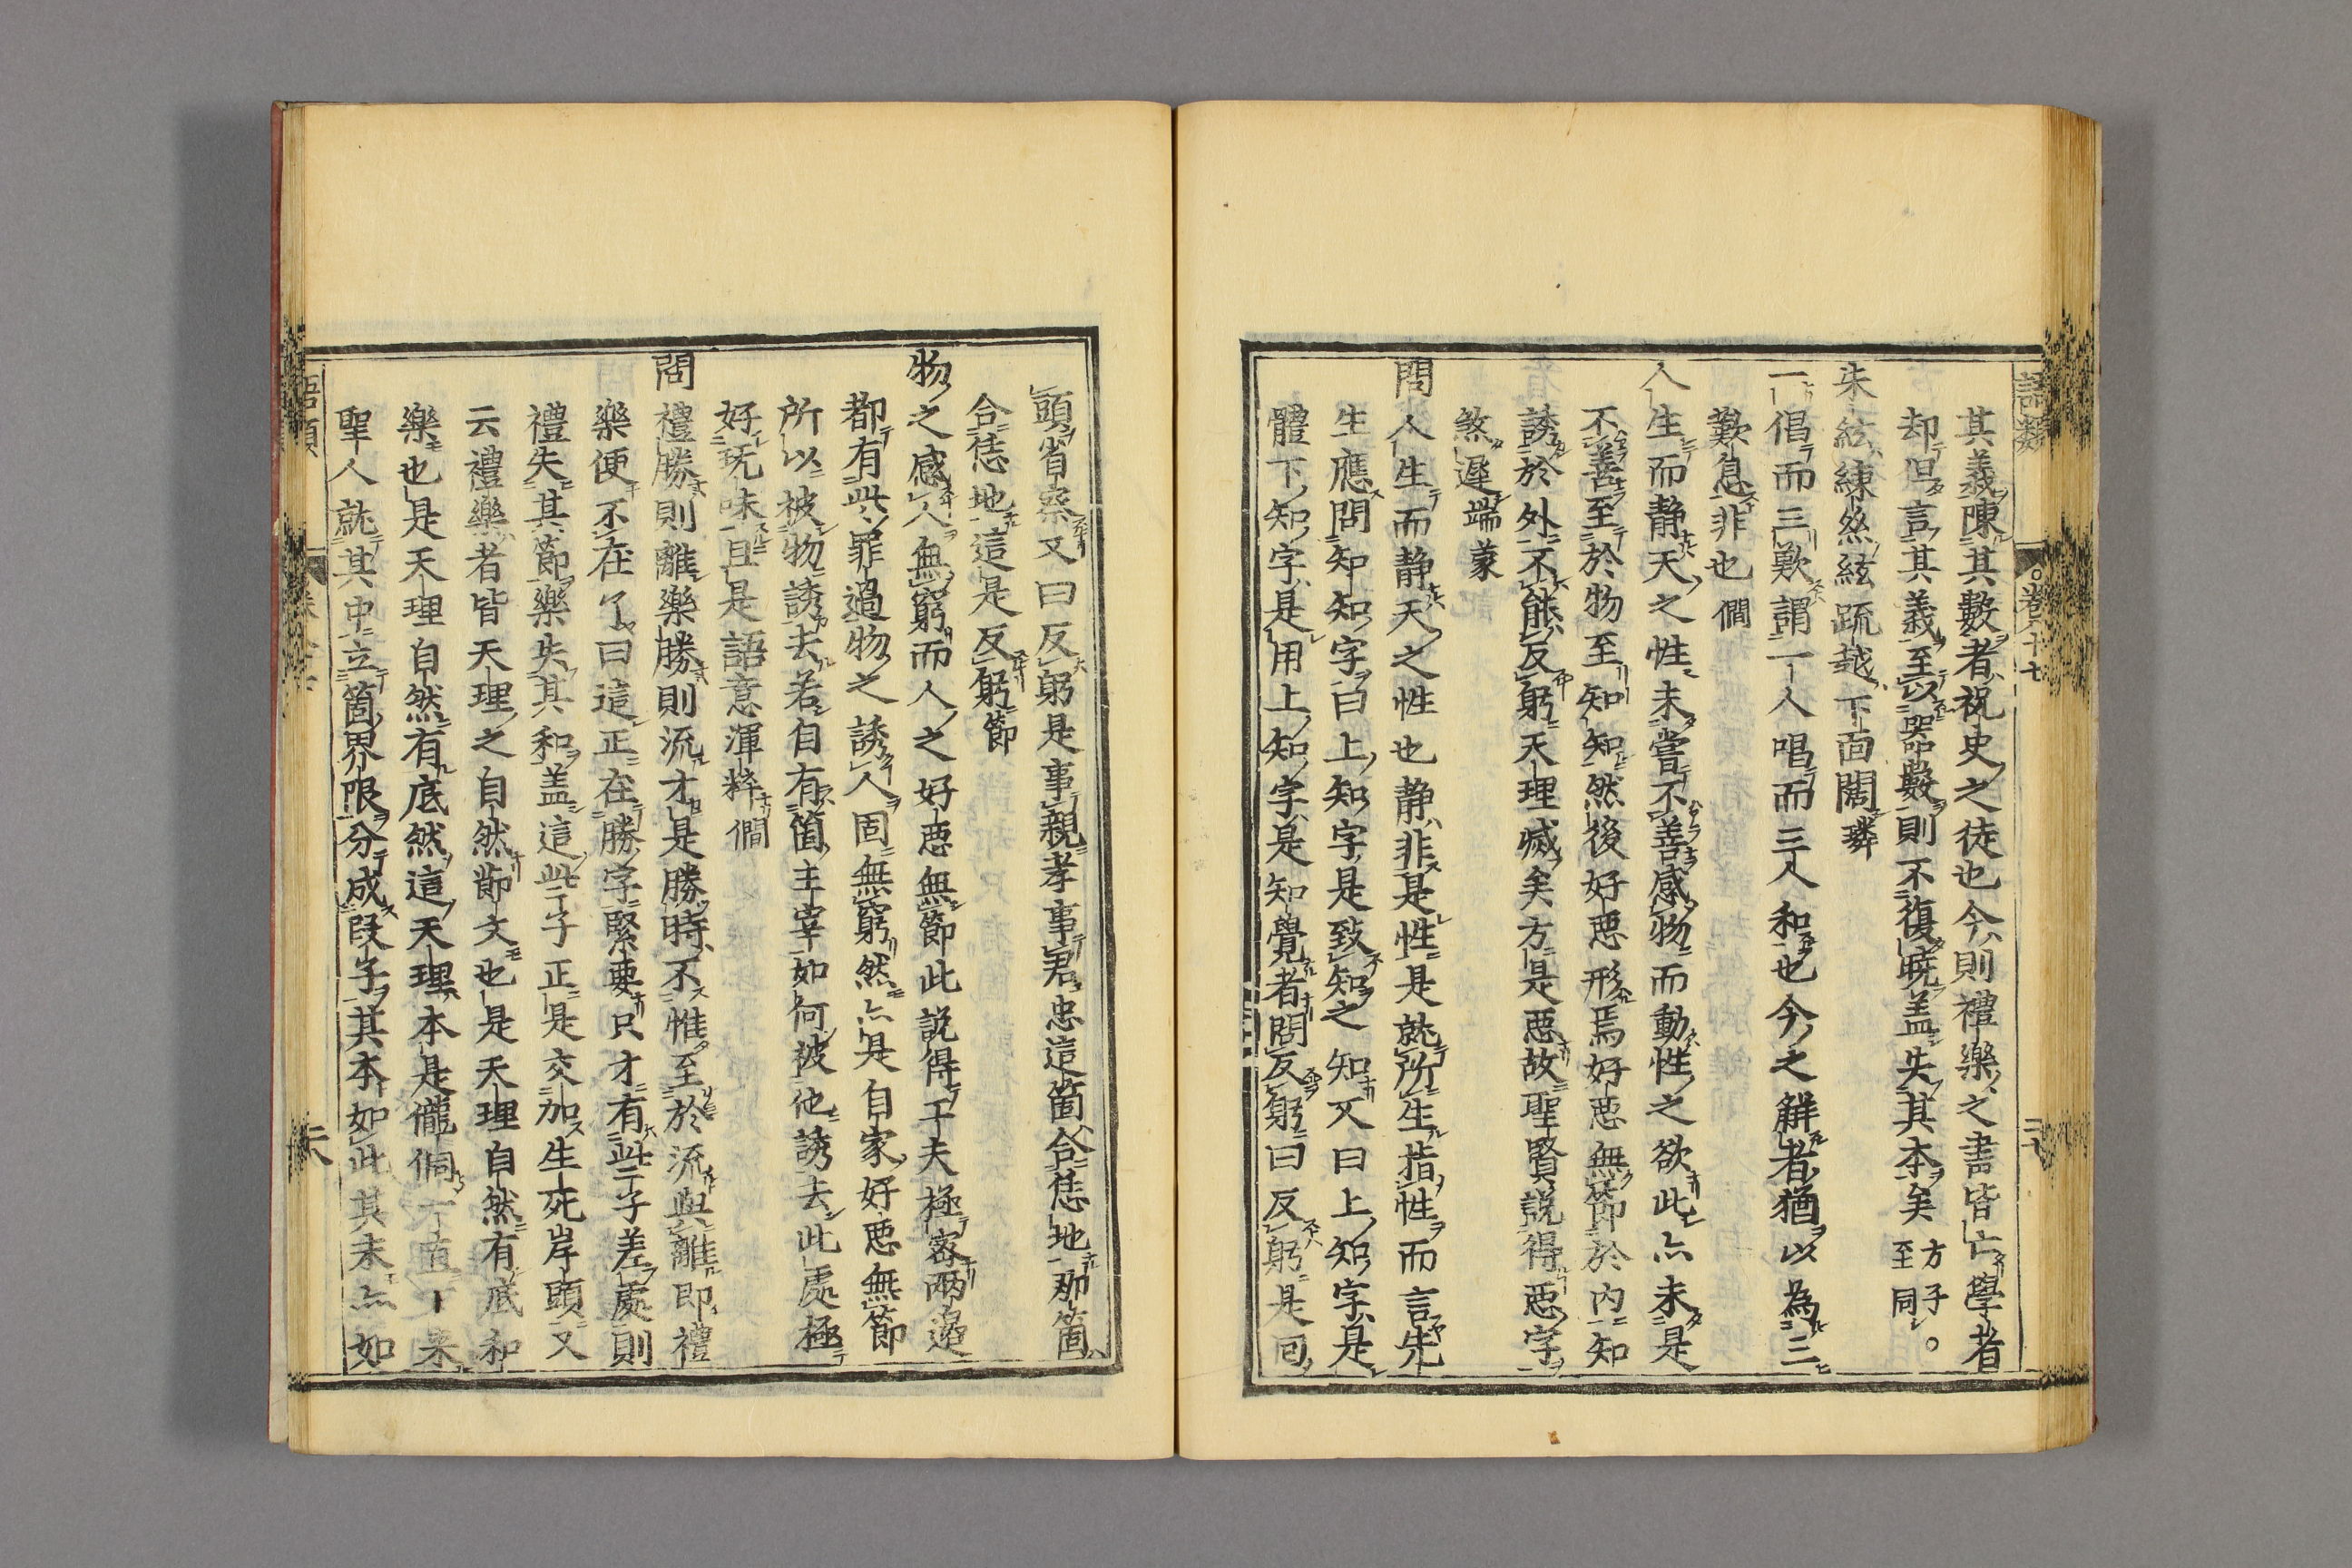 語類
卷八十七
其義陳其數者祝史之徒也今則禮樂之書皆亡學者
却但言其義至以器數則不復曉蓋失其本矣方子。至同
朱絃練絲絃疏越下面闊璘
一倡而三歎謂一人唱而三人和也今之解者猶以為三
歎息非也僩
人生而靜天之性未嘗不善感物而動性之欲此亦未是
不善至於物至知知然後好惡形焉好惡無節於內知
誘於外不能反躬天理滅矣方是惡故聖賢說得惡字
煞遲端蒙
問人生而靜天之性也靜非是性是就所生指性而言先
生應問知知字曰上知字是致知之知又曰上知字是
體下知字是用上知字是知覺者問反躬曰反躬是回
頭省察又曰反躬是事親孝事君忠這箇合恁地那箇
合恁地這是反躬節
物之感人無窮而人之好惡無節此說得工夫極密兩邊
都有些罪過物之誘人固無窮然亦是自家好惡無節
所以被物誘去若自有箇主宰如何被他誘去此處極
好玩味且是語意渾粹僩
問禮勝則離樂勝則流才是勝時不惟至於流與離即禮
樂便不在了曰這正在勝字緊要只才有些子差處則
禮失其節樂失其和蓋這些子正是交加生死岸頭又
云禮樂者皆天理之自然節文也是天理自然有底和
樂也是天理自然有底然這天理本是儱侗一直下來
聖人就其中立箇界限分成段子其本如此其末亦如